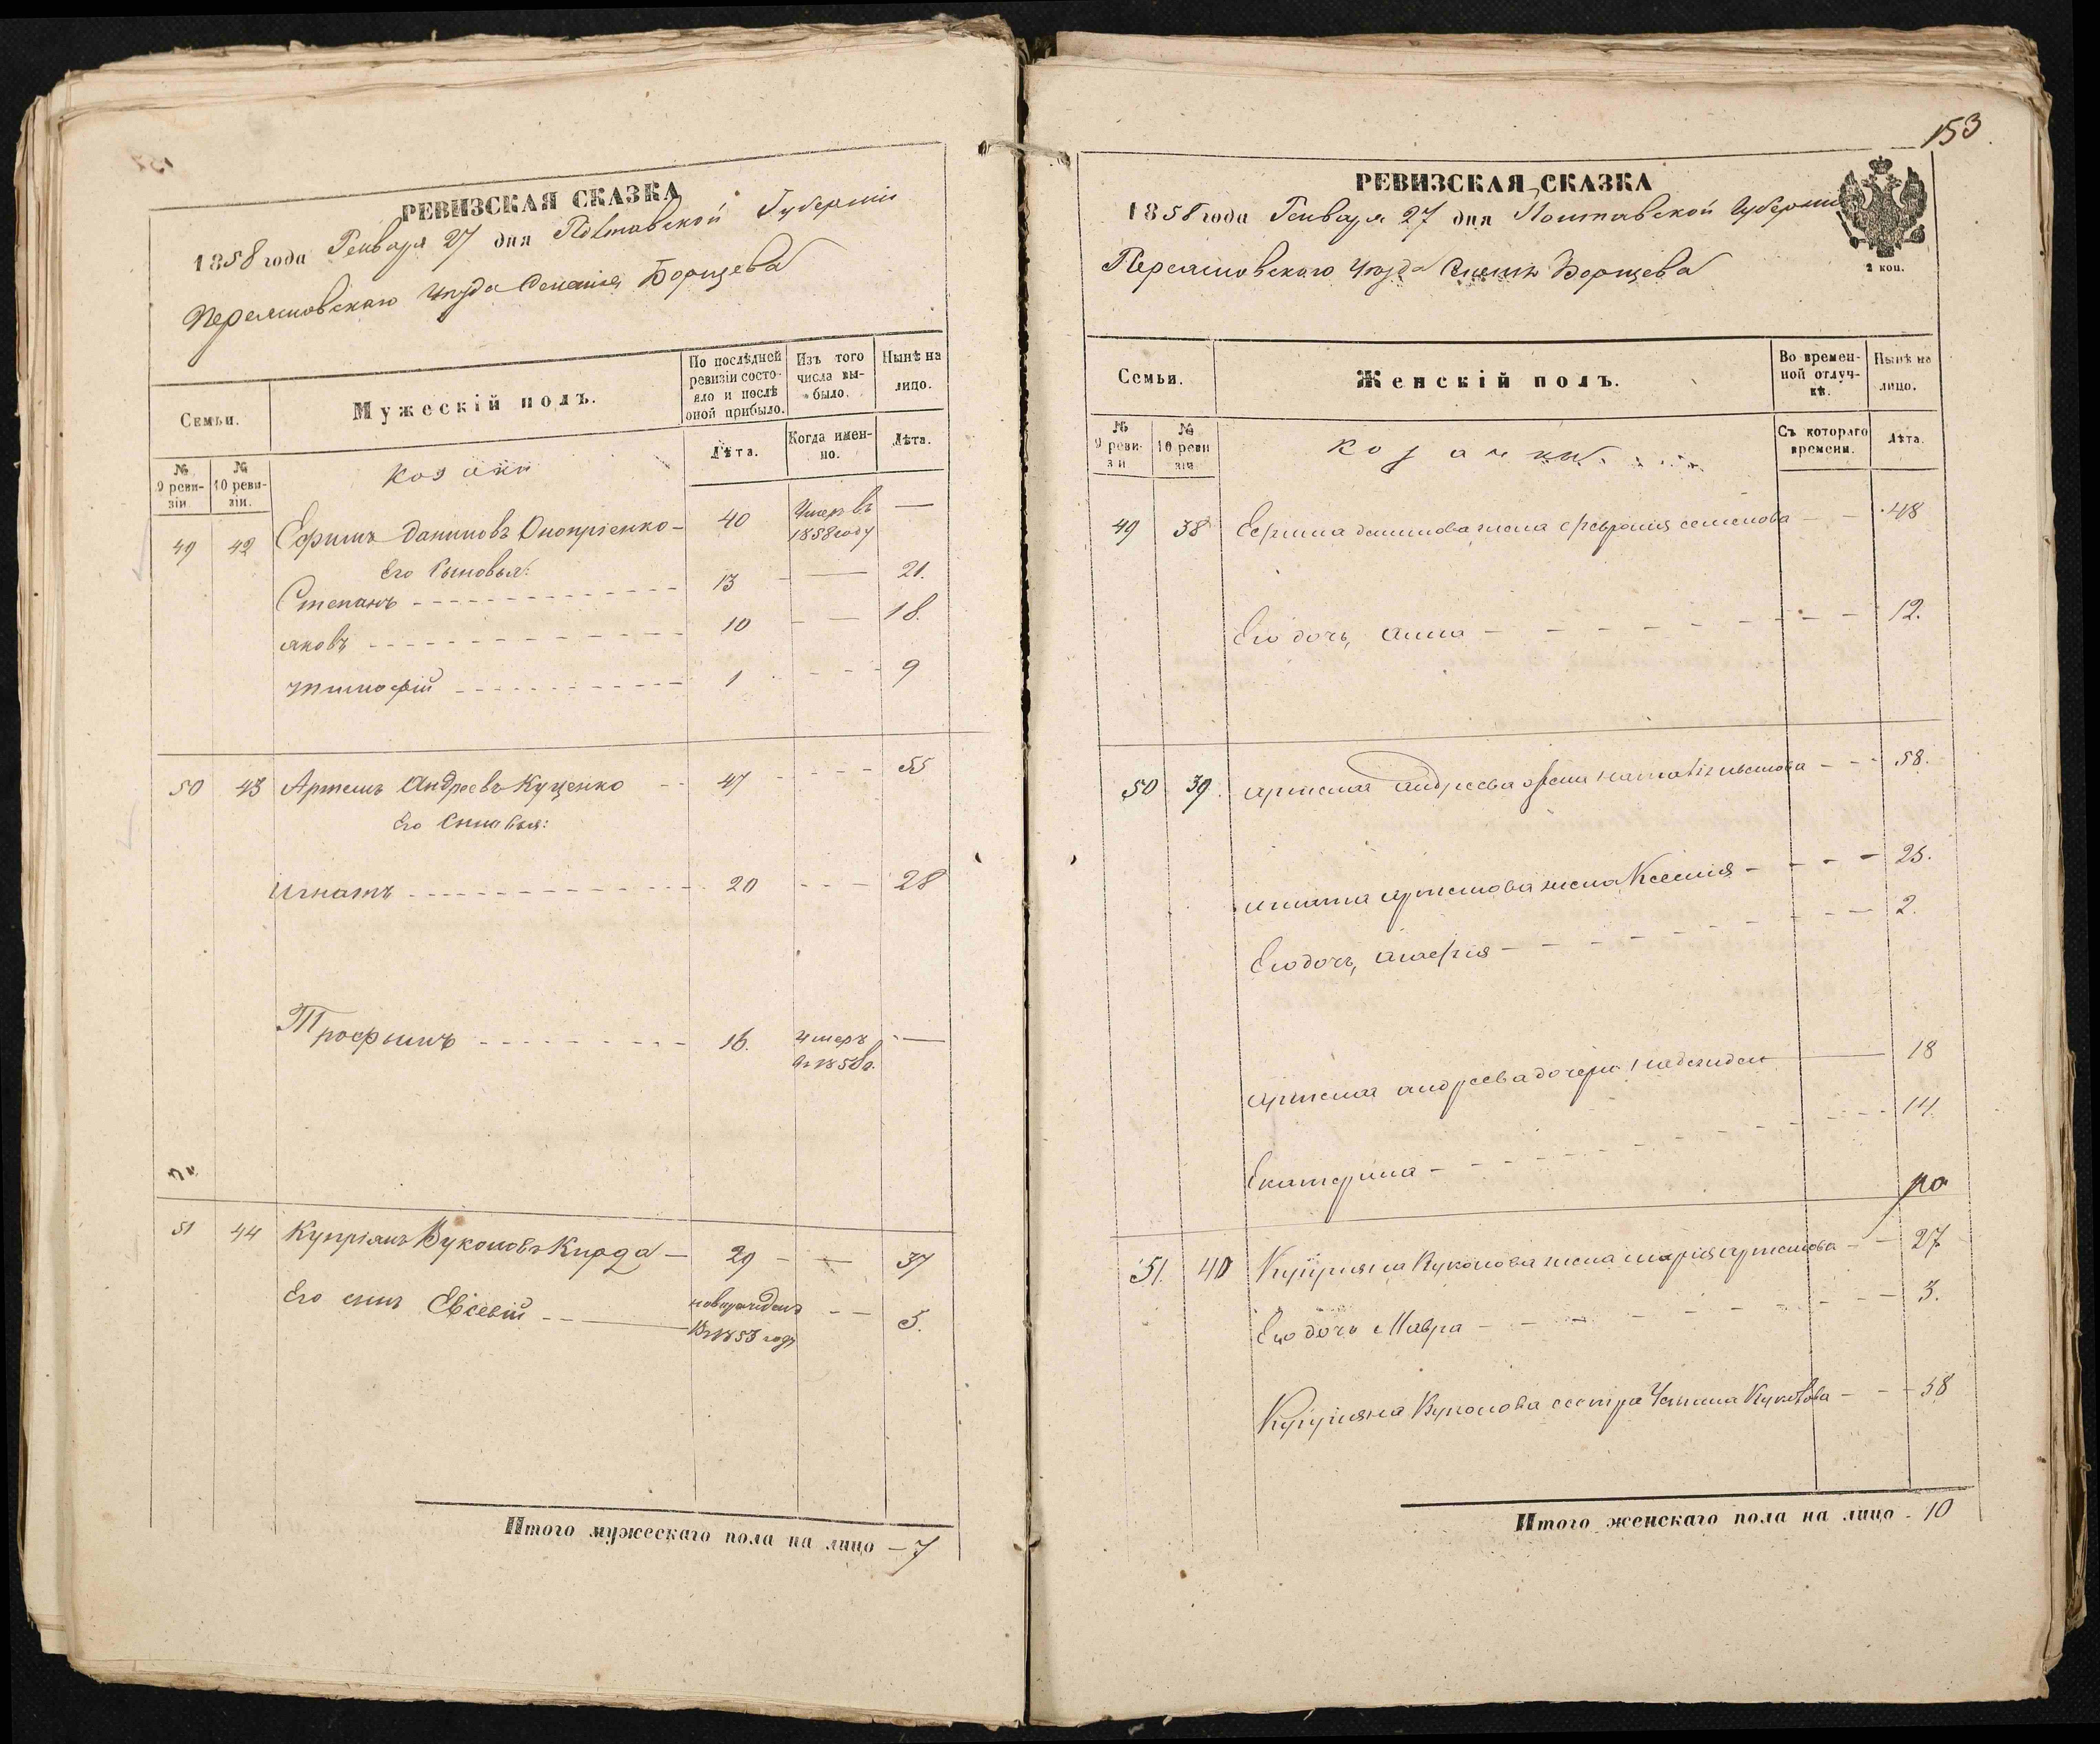 РЕВИЗСКАЯ СКАЗКА
1858 года Генваря 27 дня Полтавской Губерніи
Переяславскаго Уезда Селенія Борщева
Семьи.
Мужескій полъ.
По послѣдней ревизіи состояло и послѣ оной прибыло.
Изъ того числа выбыло.
Нынѣ на лицо.
№ 9 ревизіи.
№ 10 ревизіи.
козаки
Лѣта.
Когда именно.
Лѣта.
49 42 Ефимъ Даниловъ Оноприенко - 40 Умеръ въ 1858 году —
Его Сыновья:
Степанъ 13 — 21.
яковъ 10 — 18.
тимофій 1 9
50 43 Артемъ Андреевъ Куценко 47 55
Его Сыновья:
Игнатъ 20 28
Трофимъ 16. умеръ —
51 44 Купріянъ Вуколовъ 29 — 37
Его сынъ Евсевій новорожденъ въ 1853 году — 5.
Итого мужескаго пола на лицо — 7
153
РЕВИЗСКАЯ СКАЗКА
2 коп.
1858 года Генваря 27 дня Полтавской Губерніи
Переяславскаго Уезда Борщева
Семьи.
Женскій полъ.
Во временной отлучкѣ.
Нынѣ на лицо.
№ 9 ревизіи
№ 10 ревизіи
козачки
Съ котораго времени.
Лѣта.
49 38 Ефима данилова жена Февронія семенова 48
Его дочь, анна 12.
50 39. артема андреева жена 58.
игната артемова жена Ксенія 25.
Его дочь, агафія 2.
артема андреева дочери надежда 18
Екатерина 14.
51. 40 Купріяна Вуколова жена марія артемова 27
Его дочь Мавра 3.
Купріяна Вуколова сестра 38
Итого женскаго пола на лицо - 10